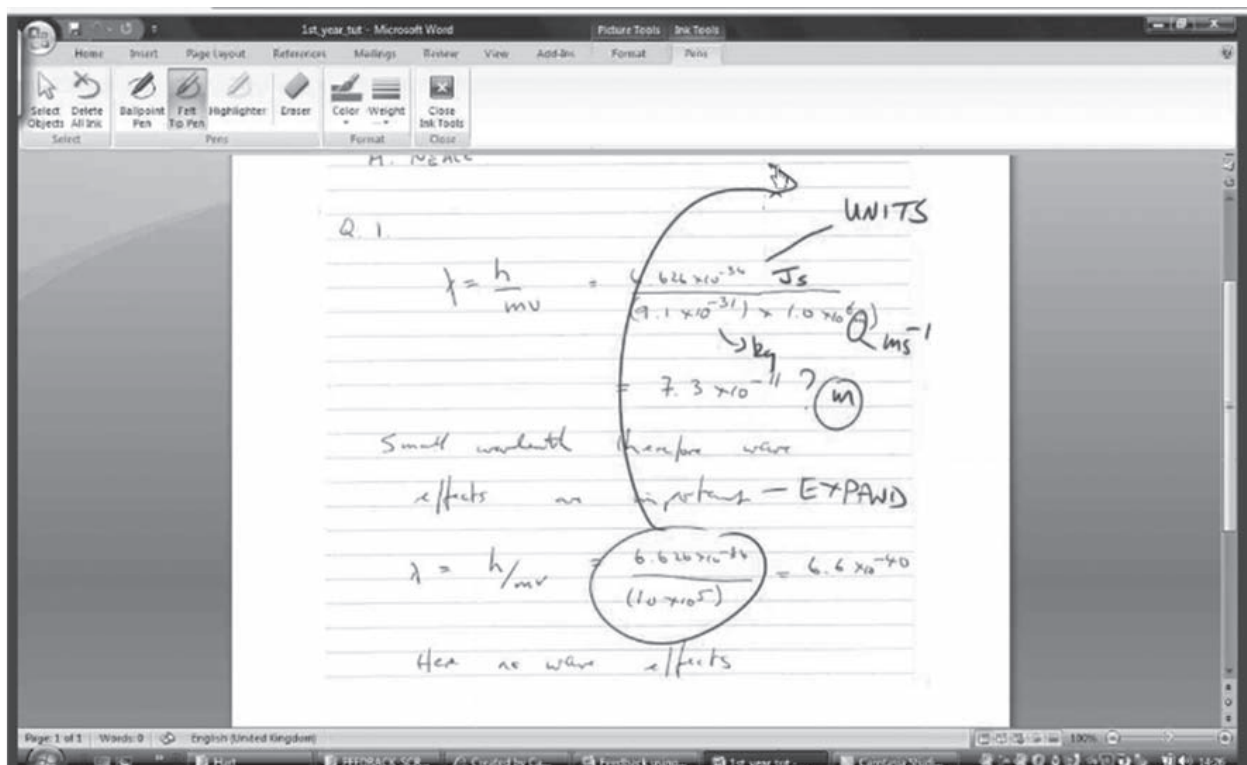 1st_year_tut - Microsoft Word
Picture Tools
Ink Tools
Home
Insert
Page Layout
References
Mailings
Review
View
Add-Ins
Format
Pens
Select Objects
Delete All Ink
Ballpoint Pen
Felt Tip Pen
Highlighter
Eraser
Color
Weight
Close Ink Tools
Select
Pens
Format
Close
Q. 1.
UNITS
λ = h/mv = 6.626 × 10⁻³⁴ Js
(9.1 × 10⁻³¹) × 1.0 × 10⁶)
kg
ms⁻¹
= 7.3 × 10⁻¹¹ ? m
Small therefore wave
effects are important - EXPAND
λ = h/mv = 6.626 × 10⁻³⁴ = 6.6 × 10⁻⁴⁰
(1.0 × 10⁵)
wave effects
Page: 1 of 1
Words: 0
English (United Kingdom)
100%
1st year tut -